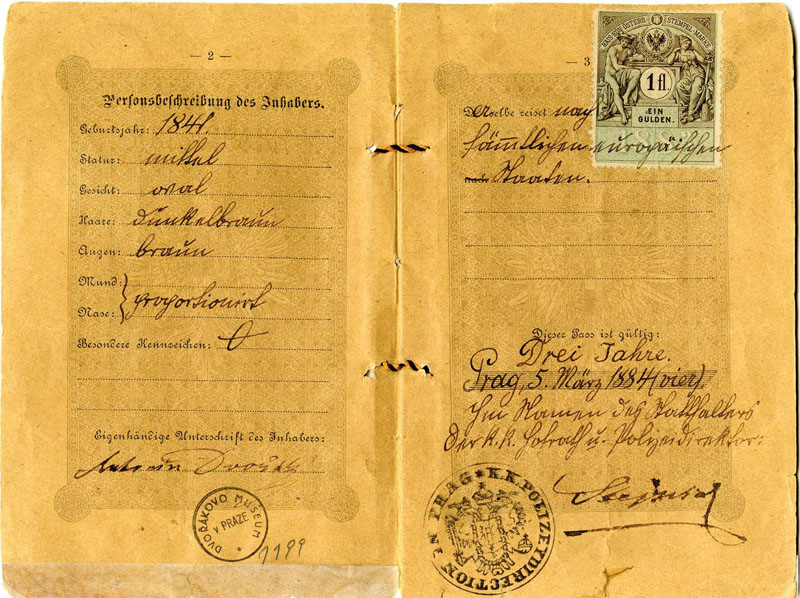 — 2 —
Personsbeschreibung des Inhabers.
Geburtsjahr: 1841.
Statur: mittel
Gesicht: oval
Haare: dunkelbraun
Augen: braun
Mund:
Nase: } proportionirt
Besondere Kennzeichen: 0
Eigenhändige Unterschrift des Inhabers:
Antonín Dvořák
DVOŘÁKOVO MUSEUM
v PRAZE
1199
— 3
KAIS. KÖN. ÖSTERR. STEMPEL-MARKE
1 fl.
EIN
GULDEN.
Derselbe reiset nach
sämmtlichen europäischen
nach Staaten.
Dieser Pass ist gültig:
Drei Jahre.
Prag, 5. März 1884 (vier).
Im Namen des Statthalters
Der k. k. Hofrath u. Polizeidirektor:
K.K. POLIZEYDIRECTION IN PRAG